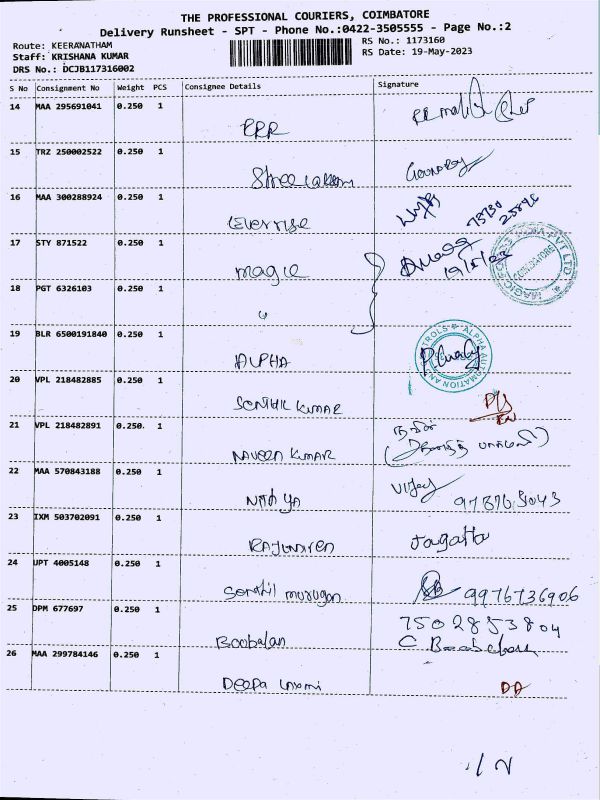 THE PROFESSIONAL COURIERS, COIMBATORE
Delivery Runsheet - SPT - Phone No.:0422-3505555 - Page No.:2
Route: KEERANATHAM RS No.: 1173160
Staff: KRISHANA KUMAR RS Date: 19-May-2023
DRS No.: DCJB117316002
S No Consignment No Weight PCS Consignee Details Signature
14 MAA 295691041 0.250 1
PRR
15 TRZ 250002522 0.250 1
Shree Laxmi
16 MAA 300288924 0.250 1
Everrise
17 STY 871522 0.250 1
magic 19/5/23
18 PGT 6326103 0.250 1
19 BLR 6500191840 0.250 1
ALPHA
20 VPL 218482885 0.250 1
SENTHIL KUMAR
21 VPL 218482891 0.250 1
NAVEEN KUMAR
22 MAA 570843188 0.250 1
NITHYA Vijay
23 IXM 503702091 0.250 1
24 UPT 4005148 0.250 1
Senthil murugan 9976736906
25 DPM 677697 0.250 1 7502853804
Boobalan
26 MAA 299784146 0.250 1
Deepa Laxmi